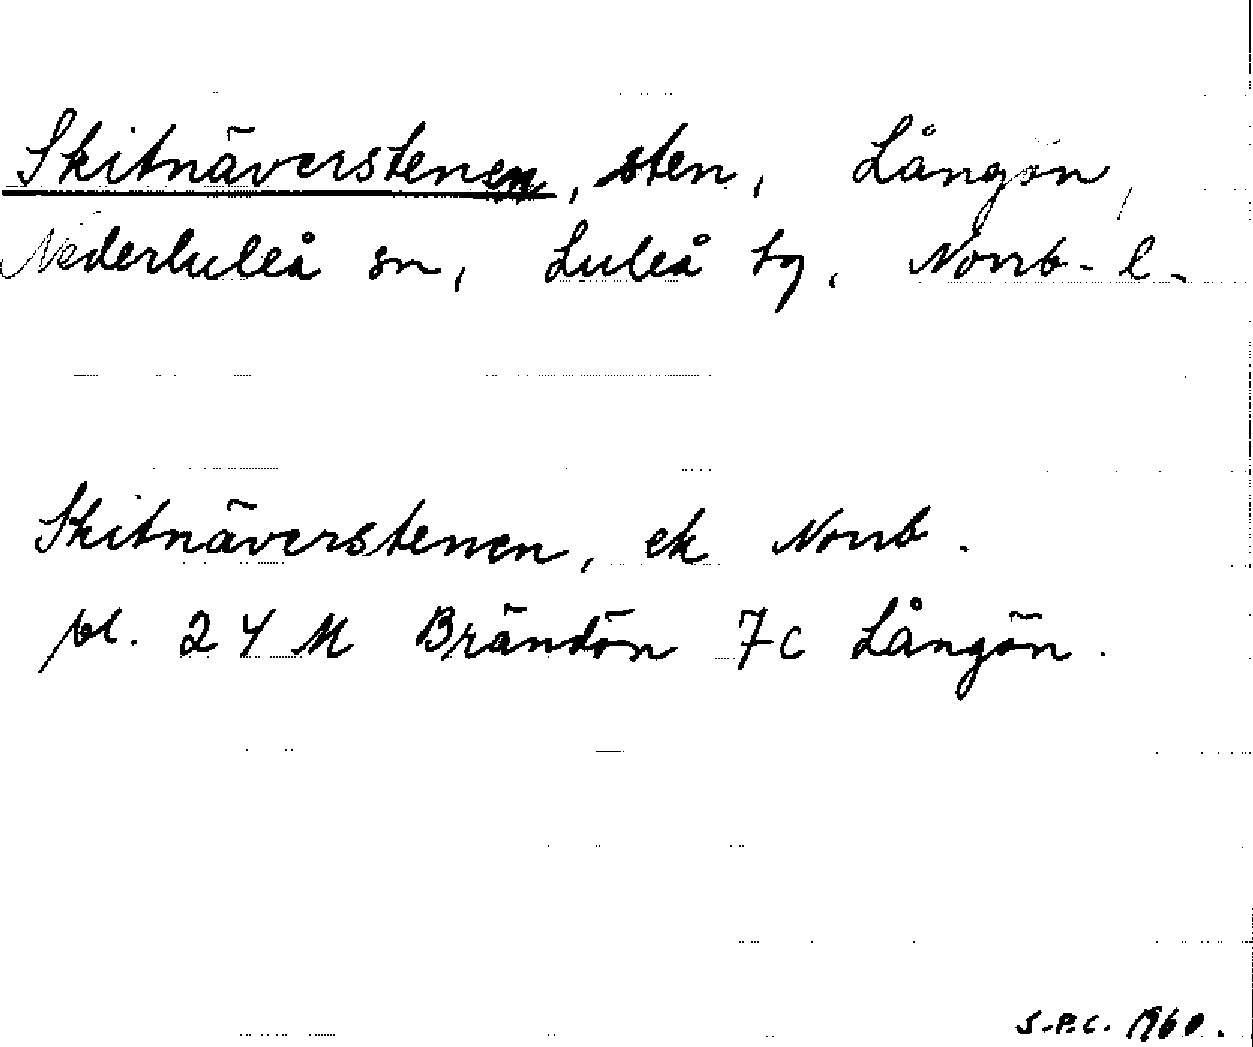 Skitnäverstenen, sten, Långön,
Nederluleå sn, Luleå tg, Norrb. l.
Skitnäverstenen, ek Norrb.
bl. 24 M Brändön 7c Långön.
S.P.C. 1960.